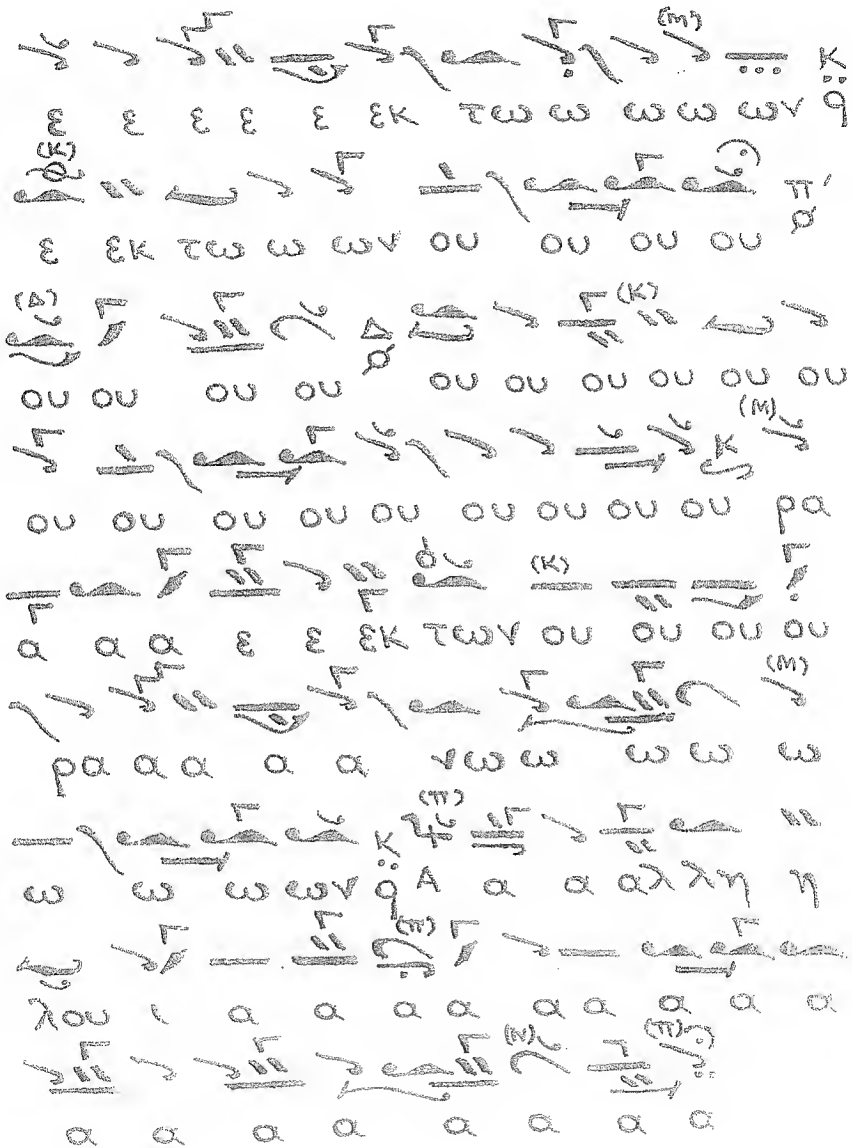 ε ε ε ε ε εκ τω ω ω ω ων
ε εκ τω ω ων ου ου ου ου
ου ου ου ου ου ου ου ου ου ου
ου ου ου ου ου ου ου ου ου ρα
α α α ε ε εκ των ου ου ου ου
ρα α α α α νω ω ω ω ω
ω ω ω ων Α α α αλ λη η
λου ι α α α α α α α α α
α α α α α α α α